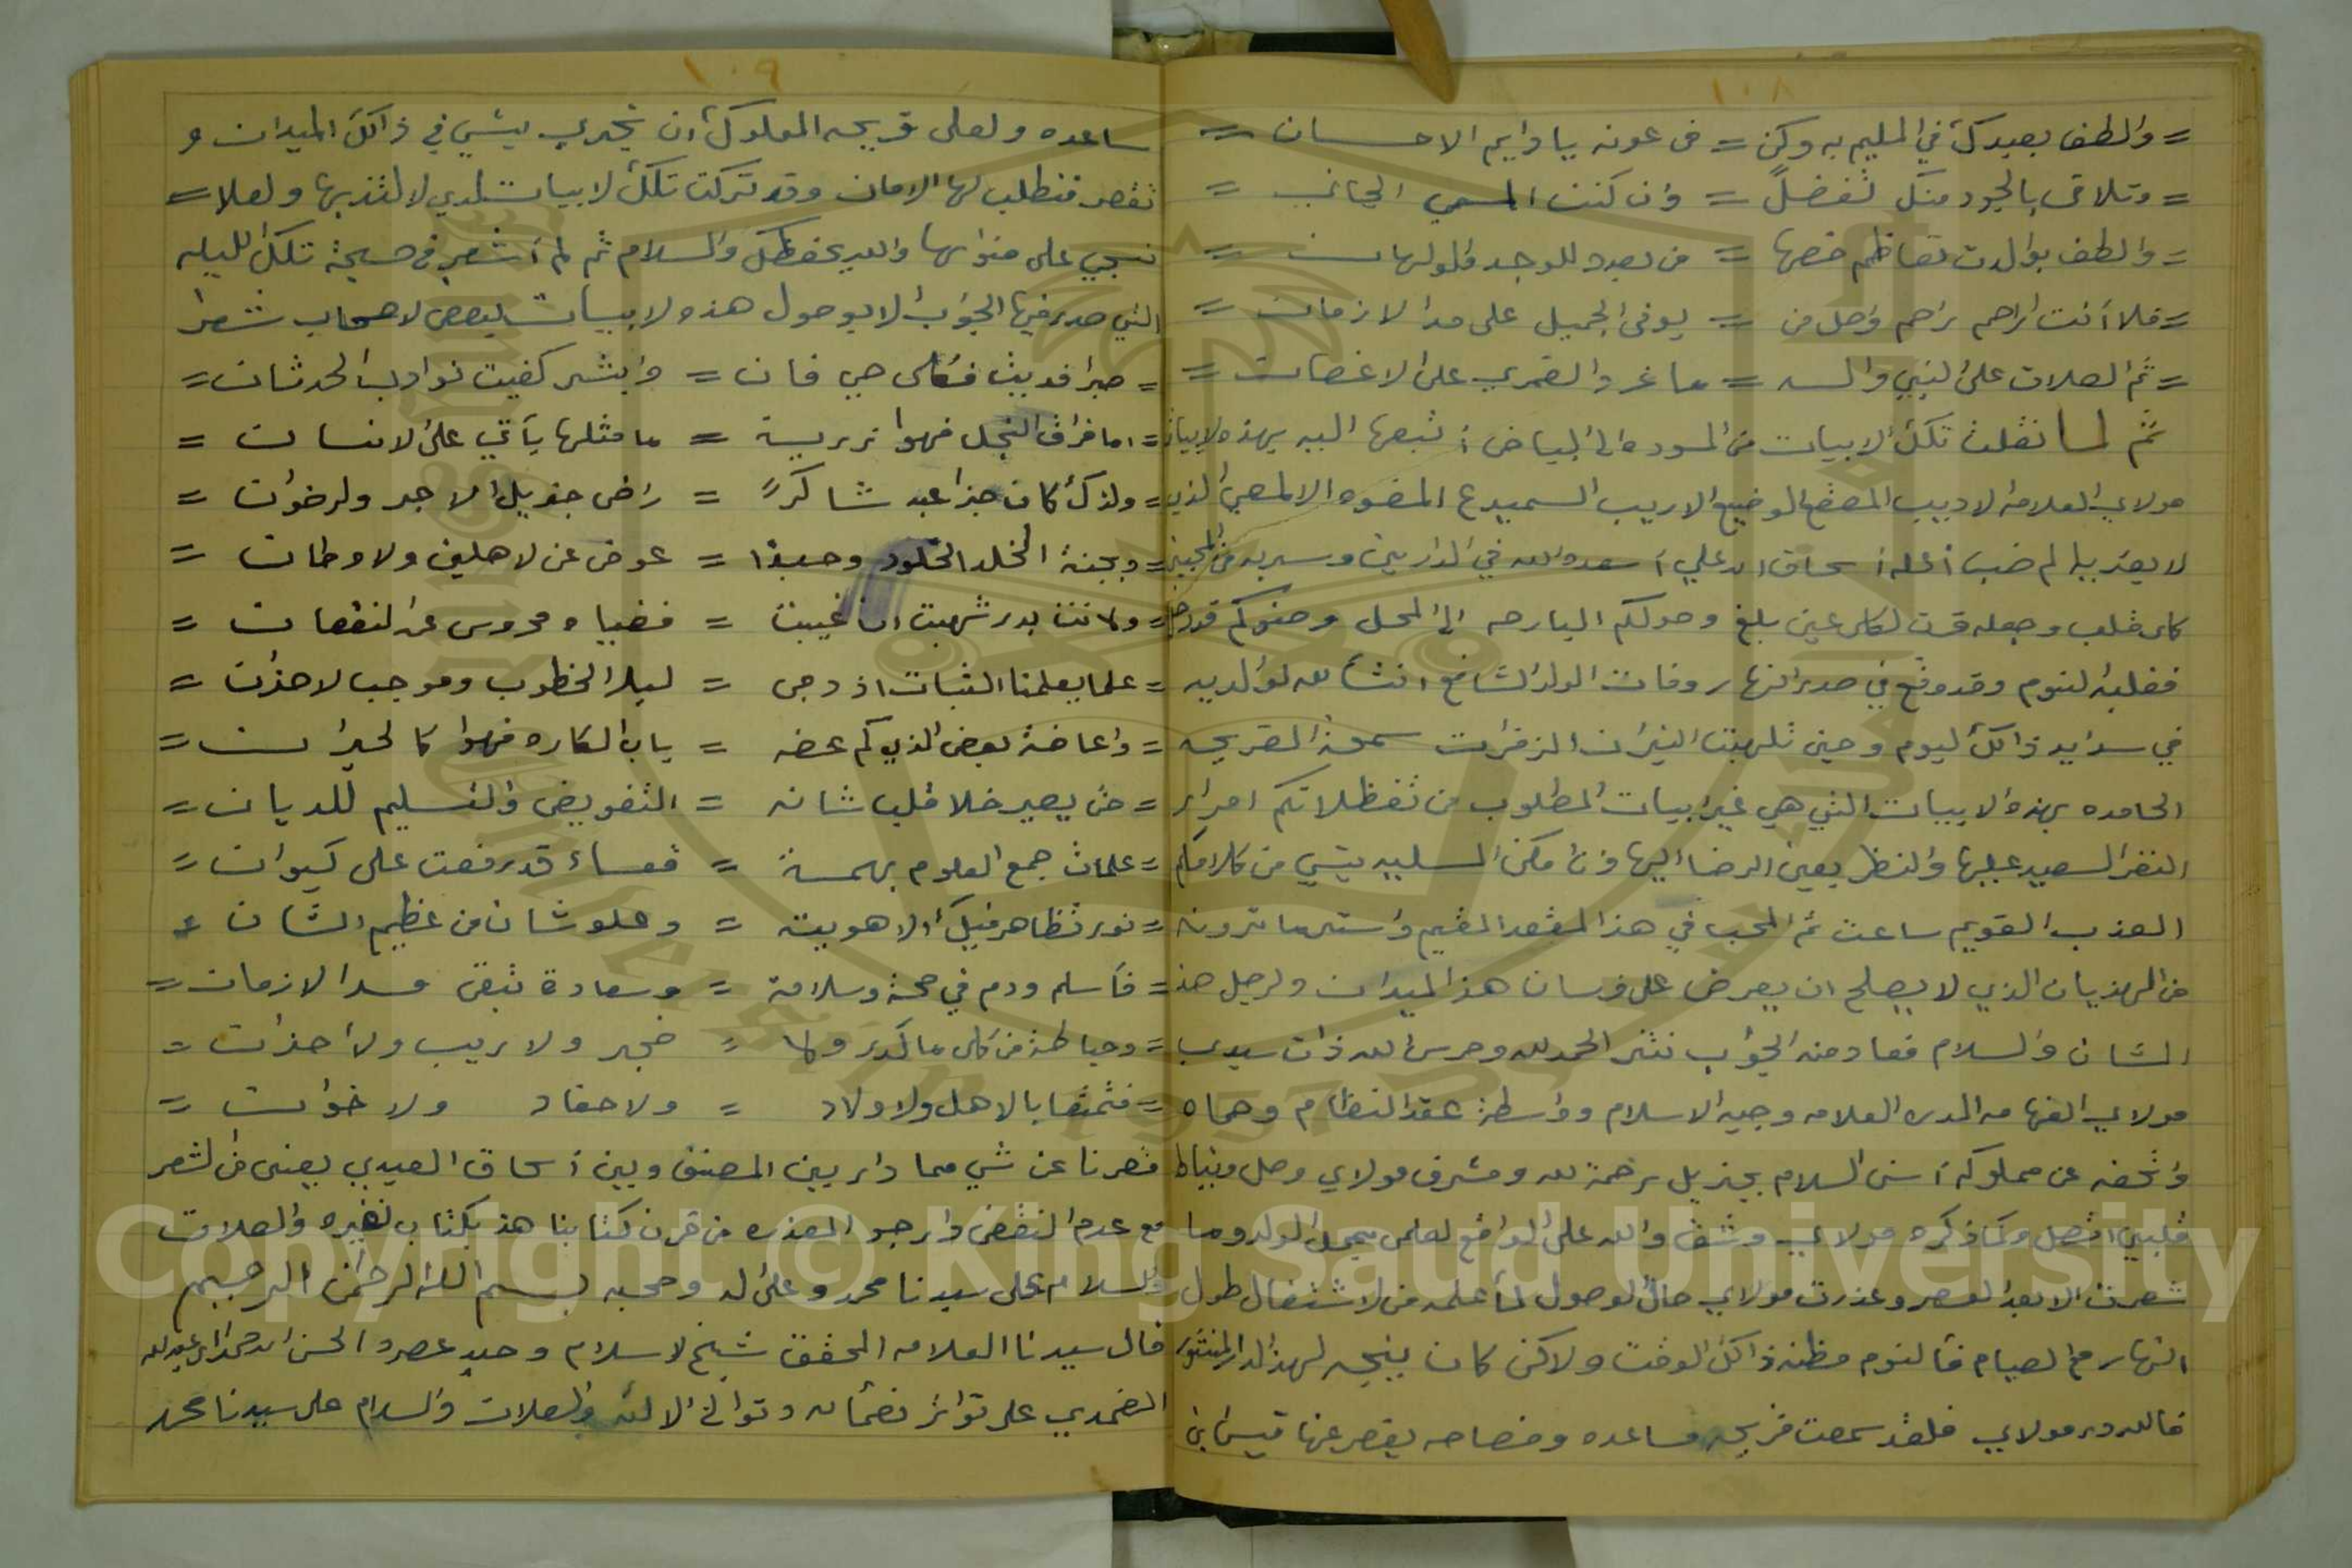 ١٠٨
= والطف بعبدك في المليم به وكن = في عونه يا دايم الاحسان =
= وتلاقى بالجود منك تفضلً = وان كنت المسي الجاني =
= والطف بوالدت تعاظم خصها = من بعده للوجد والولهان =
= فلا أنت الراحم تراحم وصل من = يوفى الجميل على مدا الازمان =
= ثم الصلات على النبي واله = ما غرد القمري على الاغصان =
ثم لما نقلت تلك الابيات من المسوده الى البياض أتبعها اليه بهذه الابيات
مولاي العلامه الاديب المصقع الوضيع الاريب السميدع المفوه الالمعي الذي
لا يعتريا لم ضب أعله أسحاق ابن علي أسعده الله في الدارين وسر به من المحبين
كل قلب وجعله قرت لكل عين بلغ وصولكم البارحه الى المحل وصنوكم قد دخل
فغلبه النوم وقد وقع في صدر النهار وفات الولد الشافع انشا لله لوالديه
في سدايد ذالك اليوم وحين تلهبت النيران الزفرات سمعة القريحه
الحامده بهذه الابيات التي هي غير ابيات المطلوب من تفظلاتكم امرار
النظر السعيد عليها والنظر بعين الرضا اليها وان امكن السلييه بشي من كلامكم
العذب القويم ساعت ثم المحب في هذا المقعد المقيم واستر ما ترونه
من الهذيان الذي لا يصلح ان يعرض على فرسان هذا الميدان ولرجل هذ
الشان والسلام فعاد منه الجواب نثر الحمد لله وحرس الله ذات سيدي
مولاي الفهامه المدره العلامه وجيه الاسلام وواسطة عقد النظام وحماه
واتحفه عن مملوكه أسنى السلام بجزيل رحمة لله ومشرف مولاي وصل وبنياط
قلبي اتصل وكما ذكره مولاي وشق والله على الواقع لعلمي بمحل الولد وما
شعرت الا بعد العصر وعذرت مولاي حال الوصول لما أعلمه من الاشتغال طول
النهار مع الصيام فالنوم مظنه ذالك الوقت ولاكن كان ينبجه لهذ الدار المنثور
فالله در مولاي فلقد سمعت قريحه مساعده وفصاحه يقصر عنها قيس ابن
١٠٩
ساعده ولعلى قريحه المملوك أن تجدي بشي في ذالك الميدان و
تقصر فنطلب لها الامان وقد تركت تلك لابيات لدي لالتذ بها ولعلا =
نسجي على منوالها والله يحفظك والسلام ثم لم أشعر في صبيحة تلك الليله
التي صدر فيها الجواب الا بوصول هذه لابيات لبعض لاصحاب شعرا
= صبرا فديت فكل حي فان = وابشر كفيت نوايب الحدثان =
= اما فراق النجل فهوا رزيية = ما مثلها يأتي على الانسان =
= ولذك كان جزا عبد شاكرً = راض جزيل الاجر ولرضوان =
= وبجنة الخلد الخلود وحبذا = عوض عن لاهلين ولاوطان =
= ولانت بدر شهبت ان غيبت = فضياه محروس عن لنقصان =
= علما يعلمنا الثبات اذ دجى = ليلا الخطوب وموجب لاحزان =
= واعاضة بعض الذي كم عضه = ياب المكاره فهوا كالحيران =
= من يصير خلا قلب شانه = التفويض والتسليم للديان =
= علمات جمع العلوم بهمسة = قعساء قد رفعت على كيوان =
= نور تظاهر فيك أو لاهويته = وعلو شان من عظيم الشان =
= فأسلم ودم في صحة وسلامة = وسعادة تبقى مدا الازمان =
= وحياطة من كل ما كدر ولا = ضجر ولا ريب ولا أحزان =
= فتمتعا بالاهل ولاولاد = ولاحفاد ولاخوان =
قصرنا عن شي مما دار بين المصنف وبين أسحاق العبدي يعني من الشعر
مع عدم النقض وارجو المعذره من قرن كتابنا هذ بكتاب لغيره والصلات
والسلام على سيدنا محمد وعلى اله وصحبه بسم الله الرحمن الرحيم
قال سيدنا العلامه المحقق شيخ لاسلام وحيد عصره الحسن ابن احمد ابن عبدالله
الضمدي على تواتر نعمائه وتوالي الائه والصلات والسلام على سيدنا محمد
Copyright © King Saud University